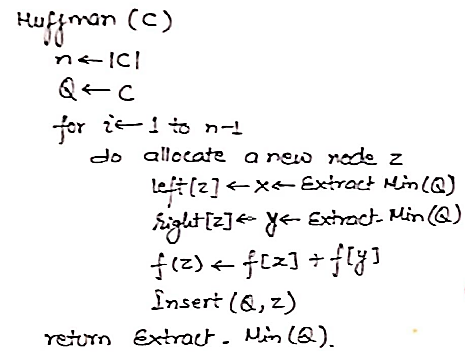 Huffman (C)
n ← |C|
Q ← C
for i ← 1 to n-1
do allocate a new node z
left[z] ← x ← Extract Min(Q)
right[z] ← y ← Extract-Min(Q)
f(z) ← f[x] + f[y]
Insert (Q, z)
return Extract - Min(Q).